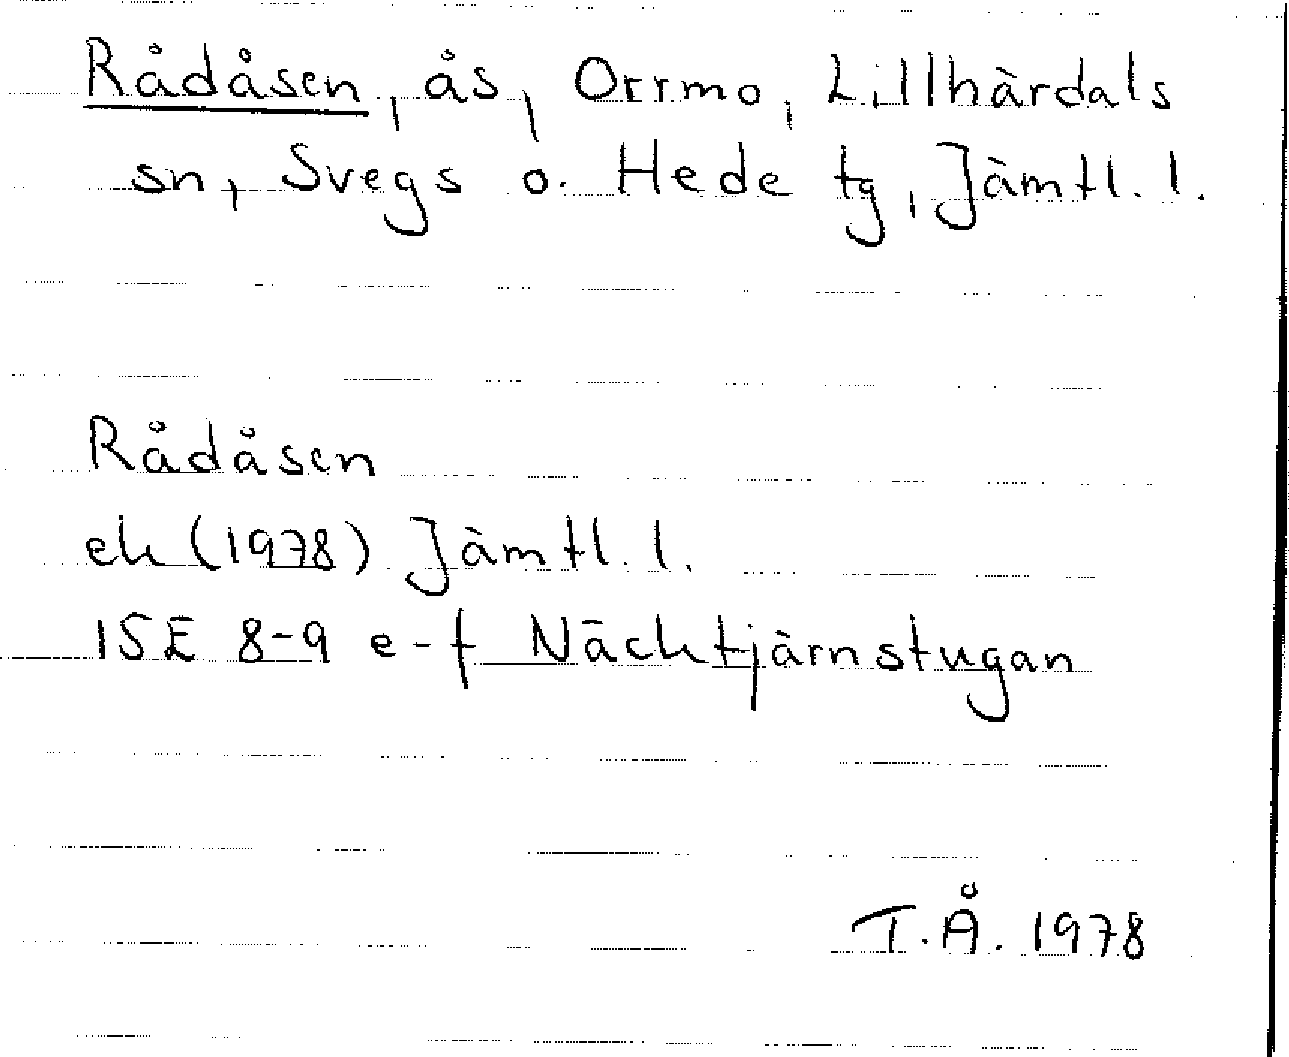 Rådåsen, ås, Orrmo, Lillhärdals
sn, Svegs o. Hede tg, Jämtl. l.
Rådåsen
ek (1978) Jämtl. l.
15E 8-9 e-f Näcktjärnstugan
T.Å. 1978